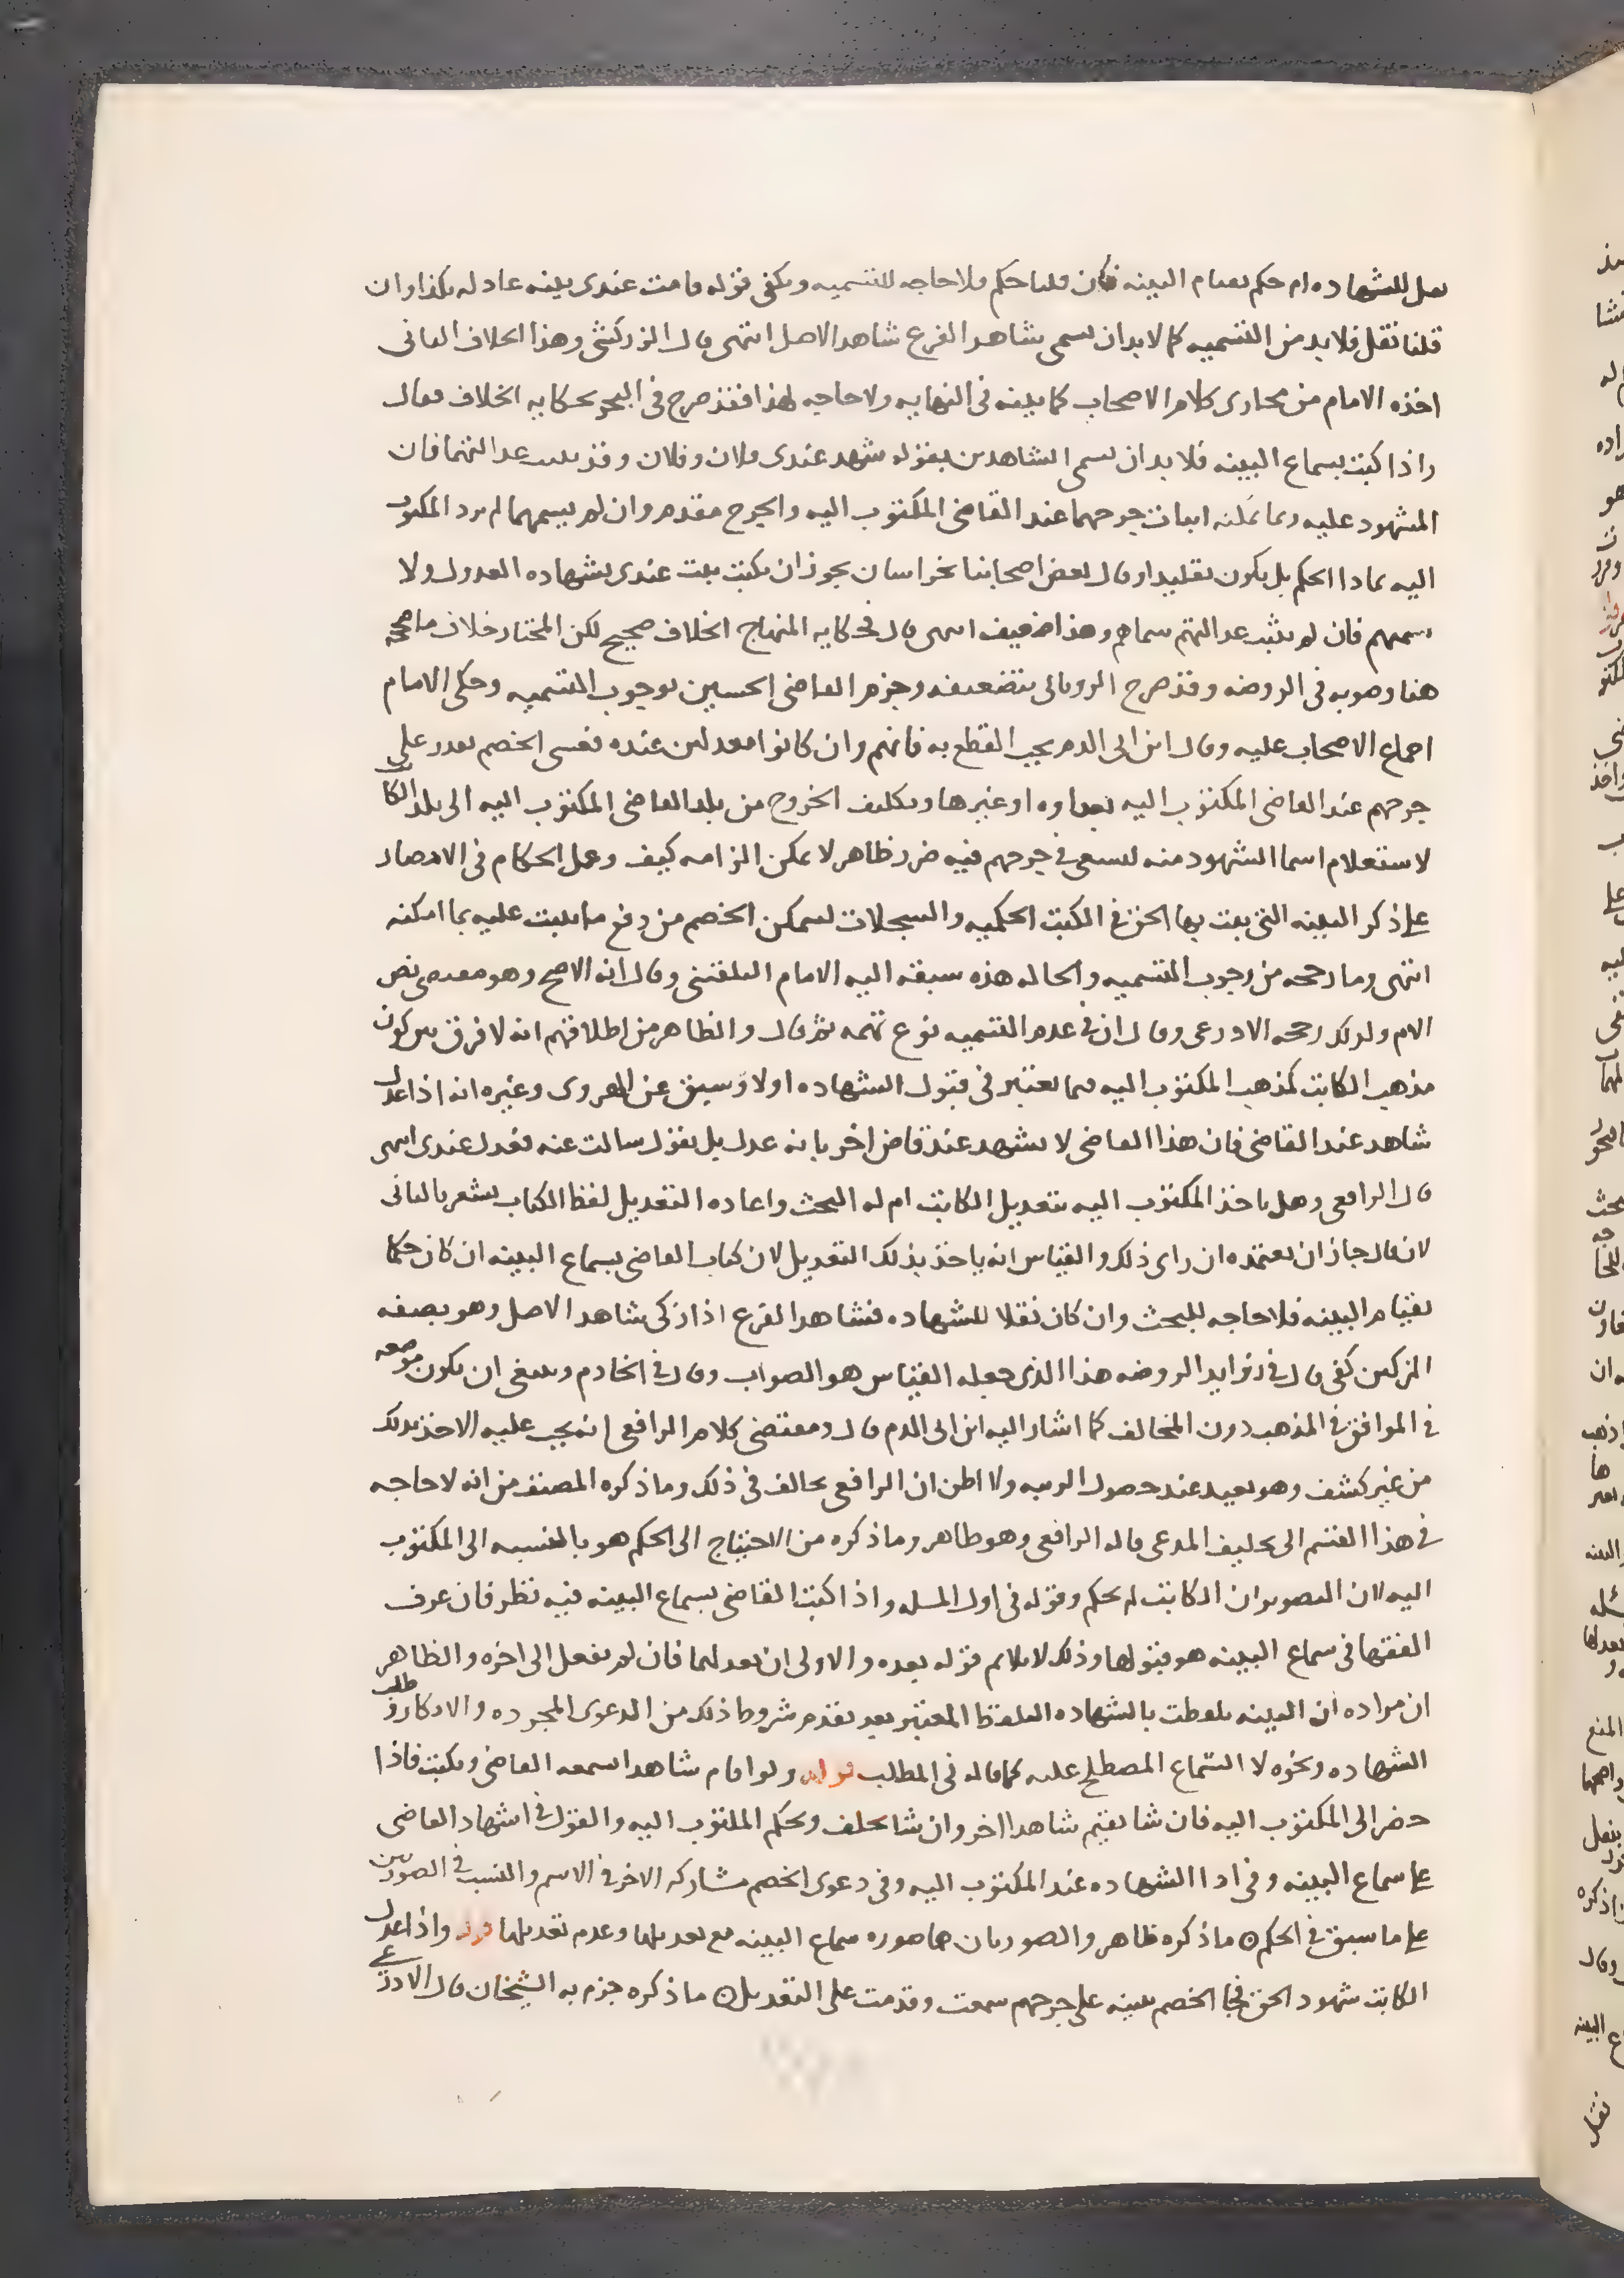 نقل للشهاده ام حكم بقيام البينه فان قلنا حكم فلا حاجه للتسميه ويكفي قوله قامت عندي بينه عادله بكذا وان
قلنا نقل فلا بد من التسميه كما لا بد ان يسمي شاهد الفرع شاهد الاصل انتهى قال الزركشي وهذا الخلاف الثاني
اخذه الامام من مجاري كلام الاصحاب كما بينه في النهايه ولا حاجه لهذا فقد صرح في البحر بحكايه الخلاف فقال
واذا كتب بسماع البينه فلا بد ان يسمي الشاهدين بقوله شهد عندي فلان وفلان وقد ثبتت عدالتهما فان
المشهود عليه ربما يمكنه اثبات جرحهما عند القاضي المكتوب اليه والجرح مقدم وان لم يسمهما لم يرد المكتوب
اليه بماذا الحكم بل يكون تقليدا وقال بعض اصحابنا بخراسان يجوز ان يكتب ثبت عندي بشهاده العدول ولا
يسميهم فان لم يثبت عدالتهم سماهم وهذا ضعيف انتهى قال فحكايه المنهاج الخلاف صحيح لكن المختار خلاف ما صححه
هنا وصوبه في الروضه وقد صرح الروياني بتضعيفه وجزم القاضي الحسين بوجوب التسميه وحكى الامام
اجماع الاصحاب عليه وقال ابن ابي الدم يجب القطع به فانهم وان كانوا معدلين عنده فعسى الخصم يقدر على
جرحهم عند القاضي المكتوب اليه بعداوه او غيرها وتكليف الخروج من بلد القاضي المكتوب اليه الى بلد الكاتب
لاستعلام اسما الشهود منه ليسعى في جرحهم فيه ضرر ظاهر لا يمكن الزامه كيف وعمل الحكام في الامصار
على ذكر البينه التي يثبت بها الحق في الكتب الحكميه والسجلات ليتمكن الخصم من دفع ما يثبت عليه بما امكنه
انتهى وما رجحه من وجوب التسميه والحاله هذه سبقه اليه الامام البلقيني وقال انه الاصح وهو مقتضى نص
الام ولذلك رجحه الاذرعي وقال ان في عدم التسميه نوع تهمه ثم قال والظاهر من اطلاقهم انه لا فرق بين كون
مذهب الكاتب كمذهب المكتوب اليه فيما يعتبر في قبول الشهاده اولا وسبق عن الهروي وغيره انه اذا عدل
شاهد عند القاضي فان هذا القاضي لا يشهد عند قاض اخر بانه عدل بل يقول سالت عنه فعدل عندي انتهى
قال الرافعي وهل ياخذ المكتوب اليه بتعديل الكاتب ام له البحث واعاده التعديل لفظ الكتاب يشعر بالثاني
لانه قال جاز ان يعتمده ان راى ذلك والقياس انه ياخذ بذلك التعديل لان كتاب القاضي بسماع البينه ان كان حكما
بقيام البينه فلا حاجه للبحث وان كان نقلا للشهاده فشاهد الفرع اذا زكى شاهد الاصل وهو بصفه
المزكين كفى قال في زوايد الروضه هذا الذي جعله القياس هو الصواب وقال في الخادم وينبغي ان يكون موضعه
في الموافق في المذهب دون المخالف كما اشار اليه ابن ابي الدم قال ومقتضى كلام الرافعي انه يجب عليه الاخذ بذلك
من غير كشف وهو بعيد عند حصول الريبه ولا اظن ان الرافعي يخالف في ذلك وما ذكره المصنف من انه لا حاجه
في هذا القسم الى تحليف المدعي قاله الرافعي وهو ظاهر وما ذكره من الاحتياج الى الحكم هو بالنسبه الى المكتوب
اليه لان التصوير ان الكاتب لم يحكم وقوله في اول المسله واذا كتب القاضي بسماع البينه فيه نظر فان عرف
الفقها في سماع البينه هو قبولها وذلك لا يلايم قوله بعده والاولى ان يعدلها فان لم يفعل الى اخره والظاهر
ان مراده ان البينه تلفظت بالشهاده التلفظ المعتبر بعد تقدم شروط ذلك من الدعوى المجرده والانكار وطلب
الشهاده ونحوه لا السماع المصطلح عليه كما قاله في المطلب قوله ولو اقام شاهدا سمعه القاضي ويكتب فاذا
حضر الى المكتوب اليه فان شا يقيم شاهدا اخر وان شا يحلف ويحكم المكتوب اليه والقول في اشهاد القاضي
على سماع البينه وفي ادا الشهاده عند المكتوب اليه وفي دعوى الخصم مشاركه الاخر في الاسم والنسب في الصورتين
على ما سبق في الحكم ه ما ذكره ظاهر والصورتان هما صوره سماع البينه مع تعديلها وعدم تعديلها قوله واذا عدل
الكاتب شهود الحق فجا الخصم ببينه على جرحهم سمعت وقدمت على التعديل ه ما ذكره جزم به الشيخان قال الاذرعي